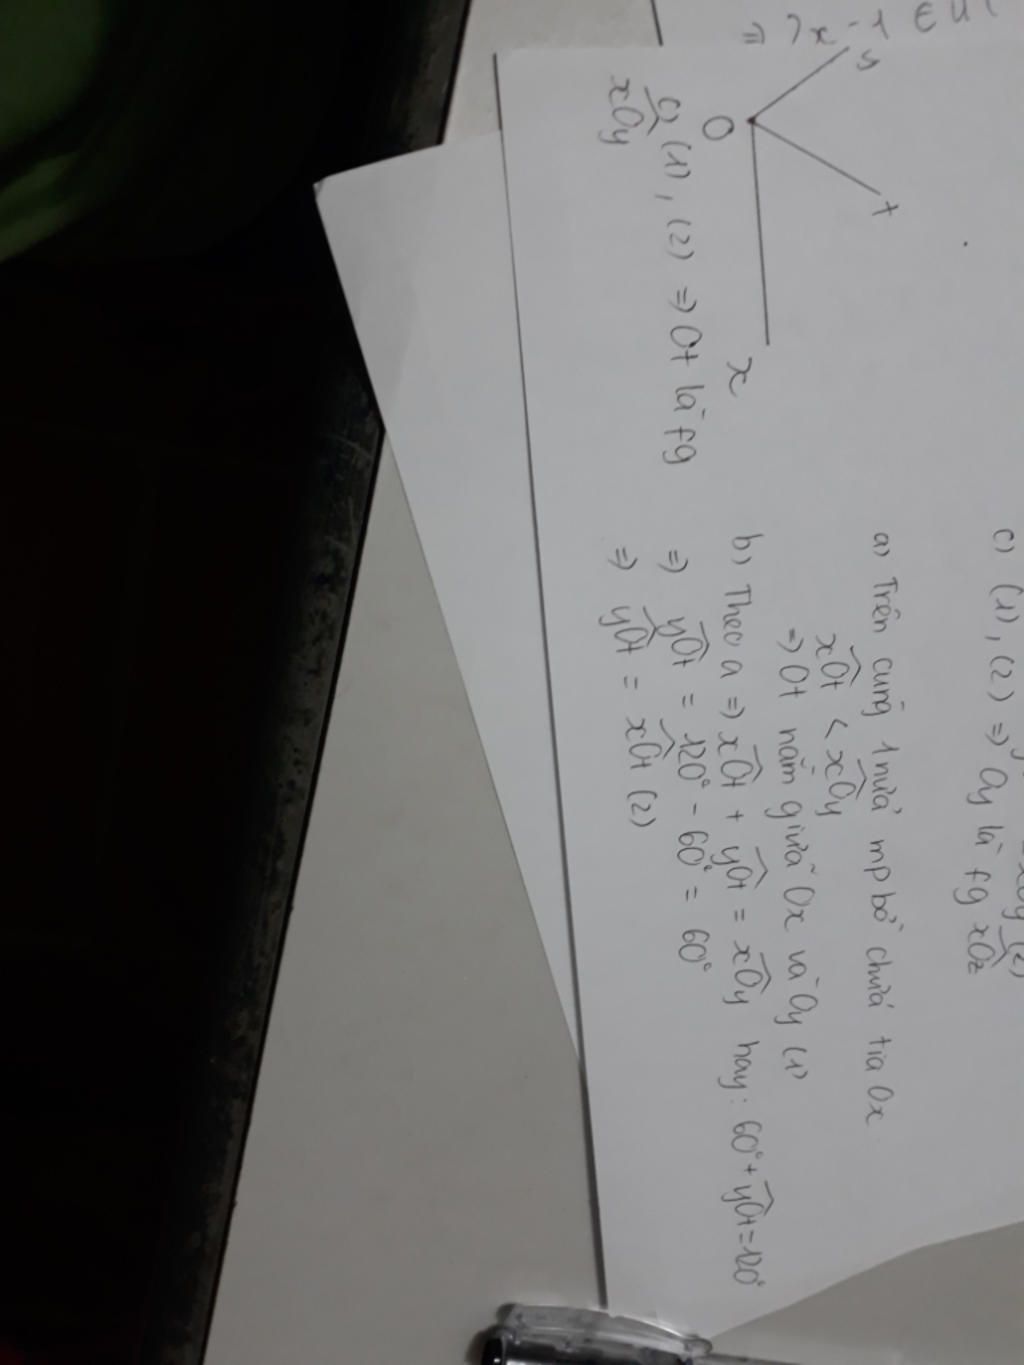 c) (1), (2) => Oy là fg xOz
a) Trên cùng 1 nửa mp bờ chứa tia Ox
xOt < xOy
=> Ot nằm giữa Ox và Oy (1)
b) Theo a => xOt + yOt = xOy hay: 60° + yOt = 120°
=> yOt = 120° - 60° = 60°
=> yOt = xOt (2)
y
t
O
x
c) (1), (2) => Ot là fg
xOy